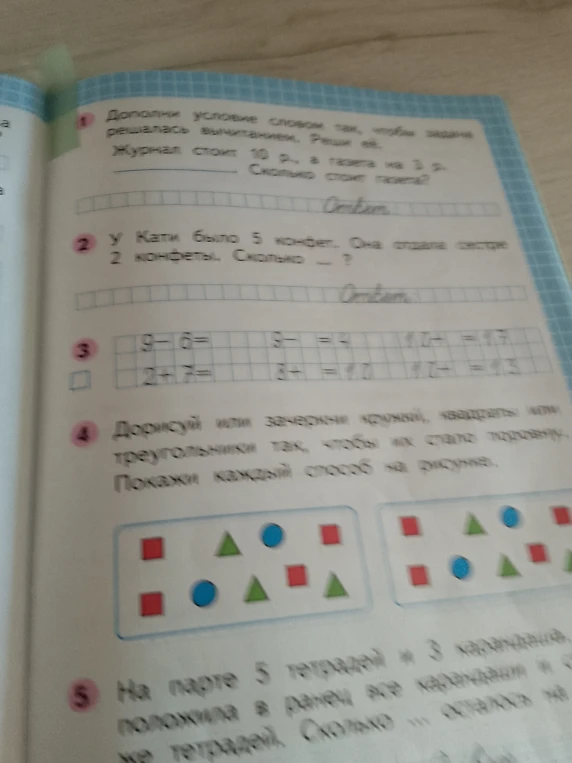 а
1 Дополни условие словом так, чтобы задача
решалась вычитанием. Реши её.
Журнал стоит 10 р., а газета на 3 р.
____________. Сколько стоит газета?
Ответ
2 У Кати было 5 конфет. Она отдала сестре
2 конфеты. Сколько ... ?
Ответ
3 9– 6= 9– =4 10+ =17
2+ 7= 8+ =10 10+ =13
4 Дорисуй или зачеркни кружки, квадраты или
треугольники так, чтобы их стало поровну.
Покажи каждый способ на рисунке.
5 На парте 5 тетрадей и 3 карандаша.
положила в ранец все карандаши и
же тетрадей. Сколько ... осталось на